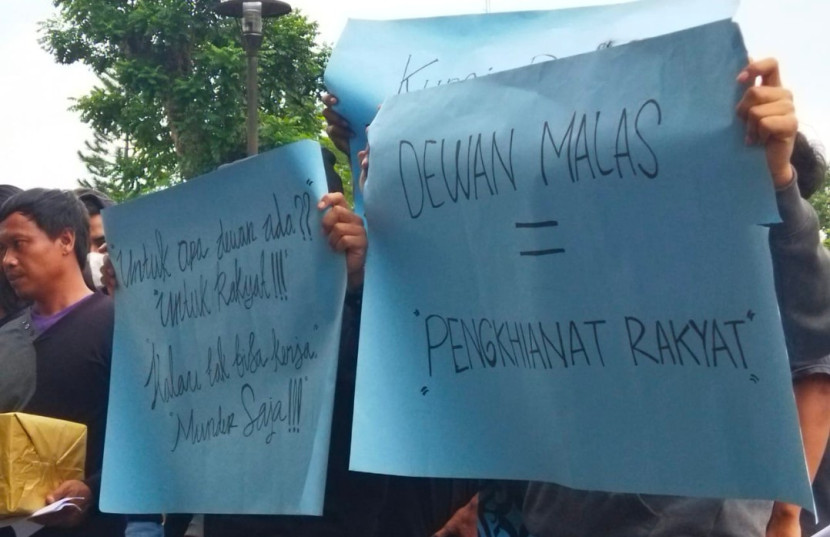 "Untuk apa dewan ada??"
"Untuk Rakyat!!!"
"Kalau tak bisa kerja"
"Mundur Saja!!!"
DEWAN MALAS
=
"PENGKHIANAT RAKYAT"